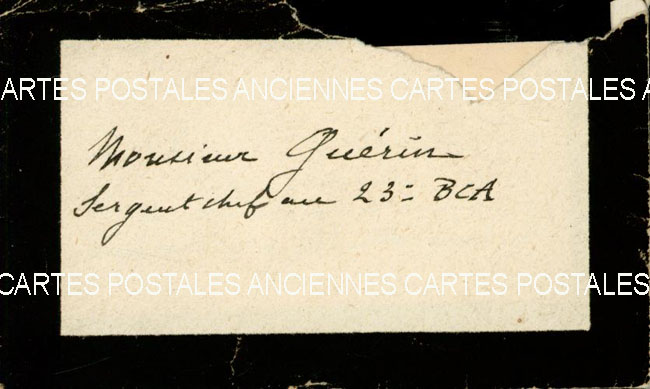 CARTES POSTALES ANCIENNES CARTES POSTALES A
Monsieur Guérin
Sergent chef au 23e BCA
CARTES POSTALES ANCIENNES CARTES POSTALES